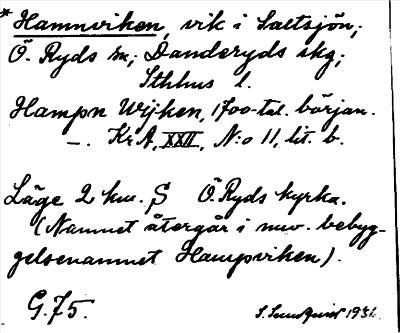 * Hamnviken, vik i Saltsjön;
Ö. Ryds sn; Danderyds skg;
Sthlms l.
Hampn Wijken, 1700-tal. början.
—. KrA, XXII, N:o 11, lit. b.
Läge 2 km. S Ö. Ryds kyrka.
(Namnet återgår i nuv. bebyg-
gelsenamnet Hampviken).
G. 75.
1936.